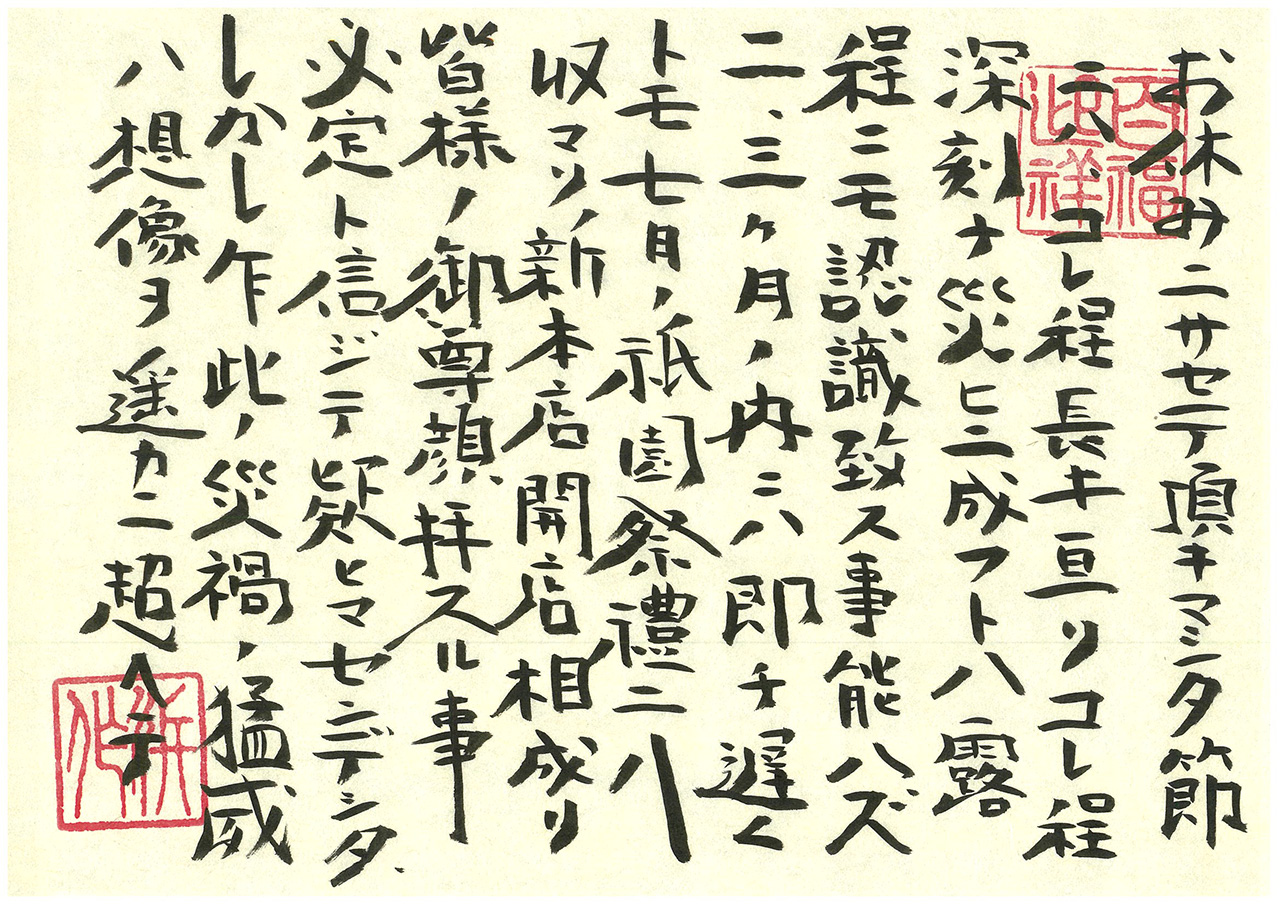 お休みニサセテ頂キマシタ節
ニハ、コレ程長キ亘リコレ程
深刻ナ災ヒニ成フトハ露
程ニモ認識致ス事能ハズ
二、三ヶ月ノ内ニハ即チ遅く
トモ七月ノ祇園祭禮ニハ
収マリ新本店開店相成り
皆様ノ御尊顔拝スル事
必定ト信ジテ疑ヒマセンデシタ、
しかし乍此ノ災禍ノ猛威
ハ想像ヲ遥カニ超ヘテ
百福
祥